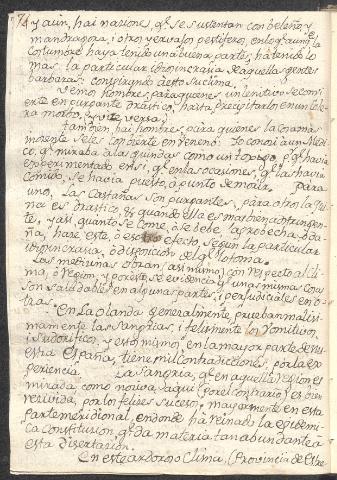 y aun, hai naziones, qe. se sustentan con beleño, y
mandragora, i otro, yervato pestifero, en lo qe. aunqe. la
costumbre haya tenido una buena parte, ha tenido lo
mas la particular idiosincrasia de aquellas gentes
barbaras; conspirando a esto su clima.
Vemos hombres, para quienes un lenitivo se convi-
erte en purgante drastico, hasta precipitarlos en un cole-
ra morbo, & vice versa.
Tambien, hai hombres, para quienes lo
se les convierte en veneno: Yo conoci a un Medi-
co, qe. miraba a las guindas como un topico, pr. qe. havia
experimentado en si, qe. en las ocasiones, qe. las havia
comido, se havia puesto, a punto de morir. para
uno, las castañas son purgantes, para otro la
na es drastico, & quando ella es mas bien adstringen-
te, y asi quanto se come, ò se bebe, aprobecha, ò da-
ña, hace este, ò esotro efecto, segun la particular
idiosincrasia, ò disposicion del qe. lo toma.
Las medizinas obran (asi mismo) con respecto al cli-
ma, ò region, y por esto se evidencia qe. unas mismas cosas
son saludables en algunas partes, i perjudiciales en o-
tras.
En la Olanda generalmente, prueban malisi-
mamente las sangrias, i felizmente los vomitivos,
i sudorificos, y esto mismo, en la mayor parte de nu-
estra España, tiene mil contradicciones, por la ex-
periencia. La sangria, qe. en aquella region es
mirada como nociva, aqui (por el contrario) es bien
rezivida, por los felices sucesos, mayormente en esta
parte meridional, en donde ha reinado la epidemi-
ca constitucion, qe. da materia tan abundante à
esta disertacion.
En este ardoroso Clima, (Provincia de Estre